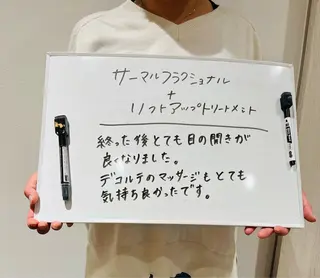 サーマルフラクショナル
+
リフトアップトリートメント
終った後とても目の開きが
良くなりました。
デコルテのマッサージもとても
気持ち良かったです。